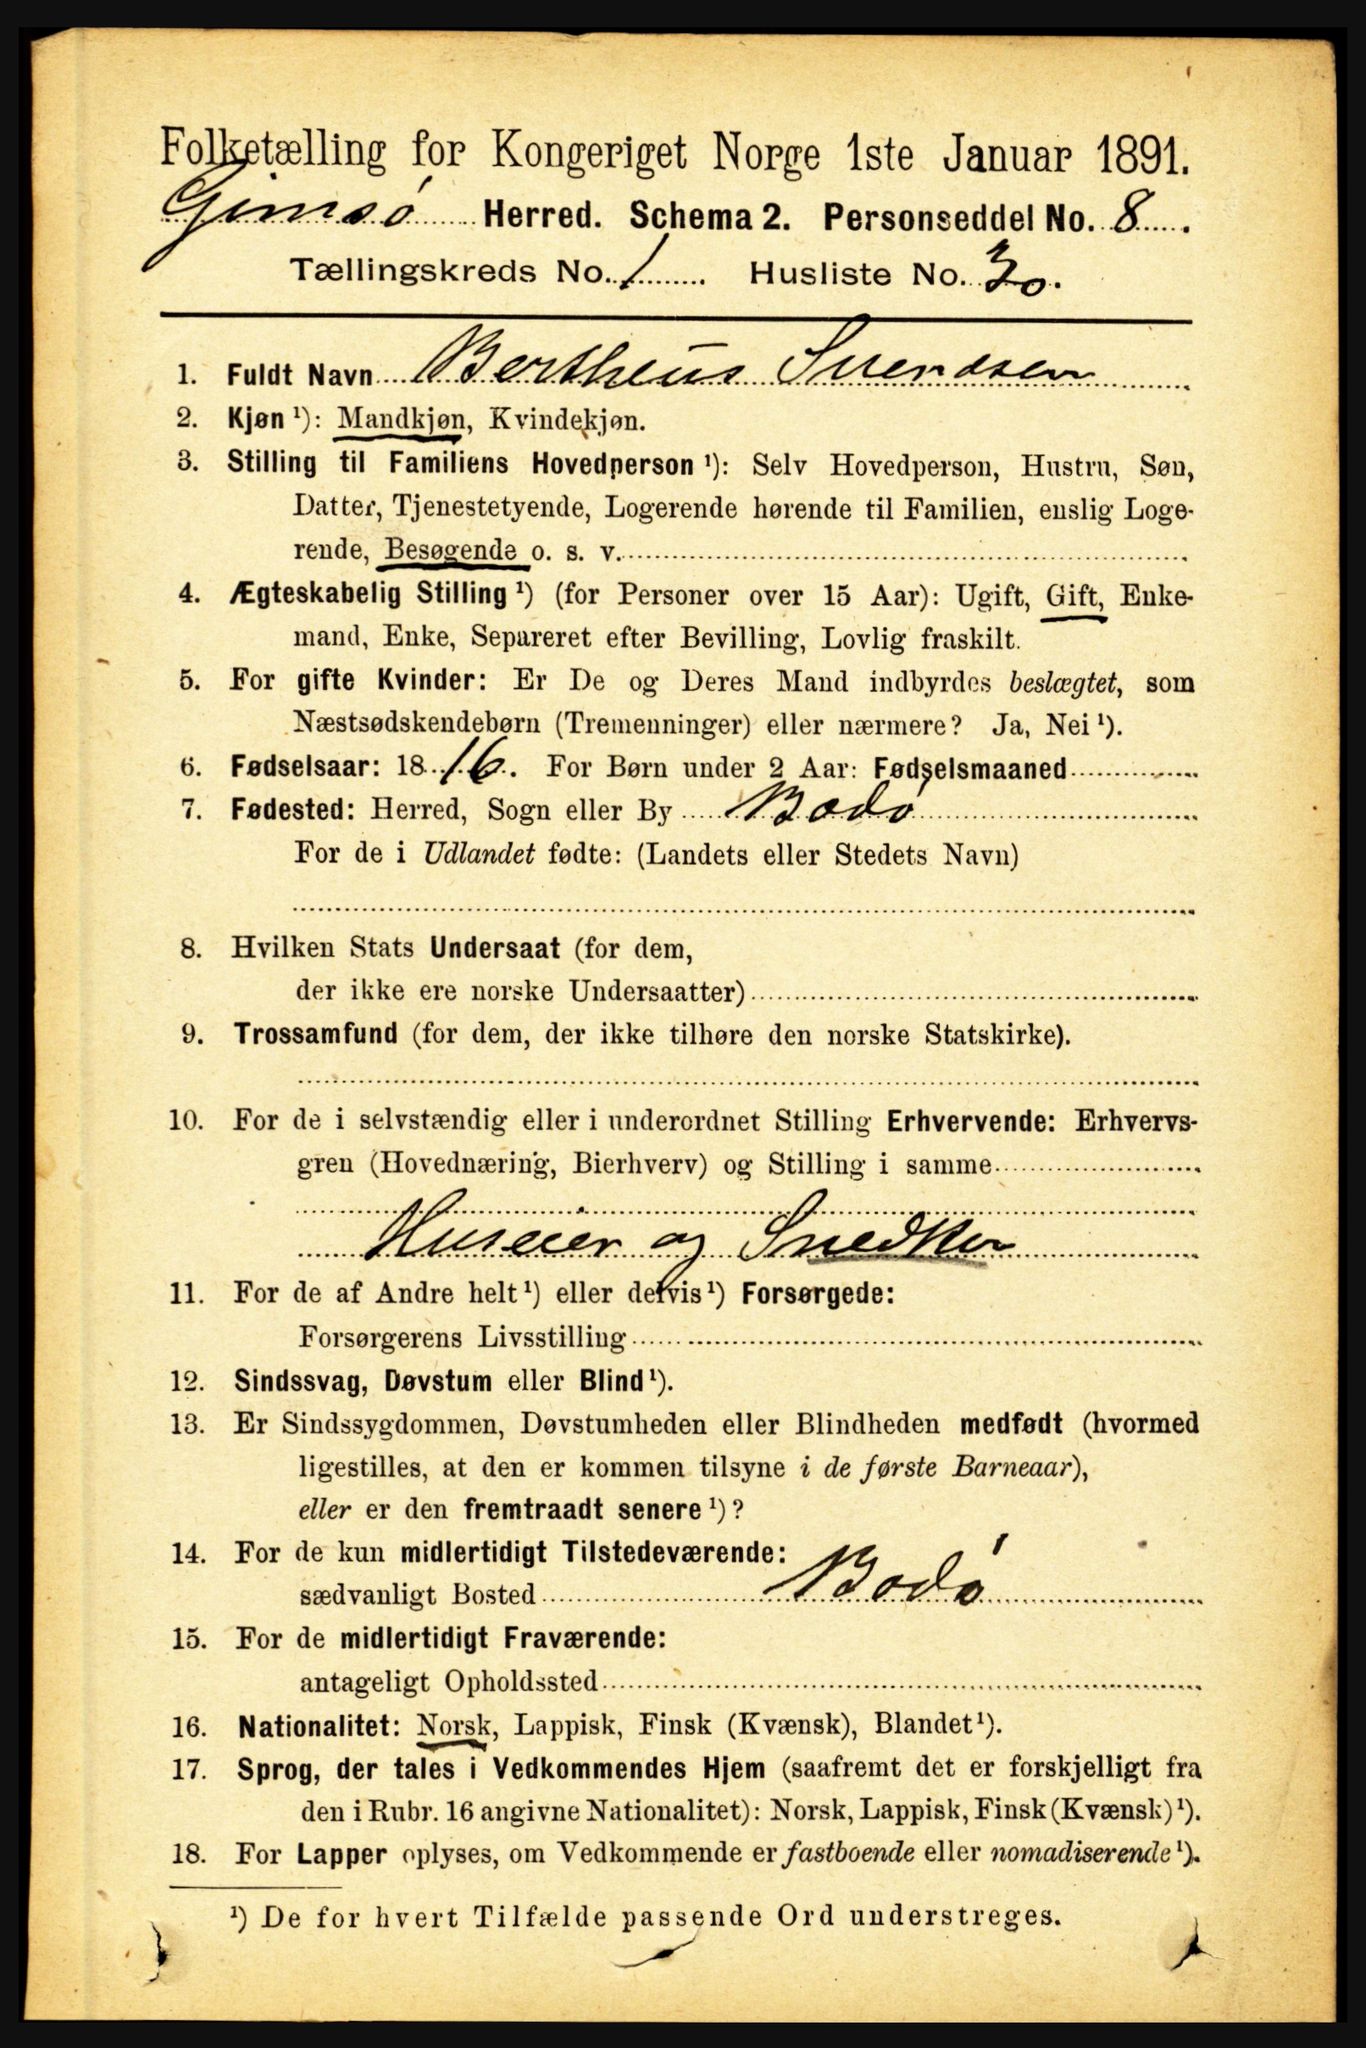 Folketælling for Kongeriget Norge 1ste Januar 1891.
Gimsø Herred. Schema 2. Personseddel No. 8.
Tællingskreds No. 1. Husliste No. 30.
1. Fuldt Navn Bertheus Svendsen
2. Kjøn ¹): Mandkjøn, Kvindekjøn.
3. Stilling til Familiens Hovedperson ¹): Selv Hovedperson, Hustru, Søn,
Datter, Tjenestetyende, Logerende hørende til Familien, enslig Loge-
rende, Besøgende o. s. v.
4. Ægteskabelig Stilling ¹) (for Personer over 15 Aar): Ugift, Gift, Enke-
mand, Enke, Separeret efter Bevilling, Lovlig fraskilt.
5. For gifte Kvinder: Er De og Deres Mand indbyrdes beslægtet, som
Næstsødskendebørn (Tremenninger) eller nærmere? Ja, Nei ¹).
6. Fødselsaar: 1816. For Børn under 2 Aar: Fødselsmaaned
7. Fødested: Herred, Sogn eller By Bodø
For de i Udlandet fødte: (Landets eller Stedets Navn)
8. Hvilken Stats Undersaat (for dem,
der ikke ere norske Undersaatter)
9. Trossamfund (for dem, der ikke tilhøre den norske Statskirke).
10. For de i selvstændig eller i underordnet Stilling Erhvervende: Erhvervs-
gren (Hovednæring, Bierhverv) og Stilling i samme
Huseier og Snedker
11. For de af Andre helt ¹) eller delvis ¹) Forsørgede:
Forsørgerens Livsstilling
12. Sindssvag, Døvstum eller Blind ¹).
13. Er Sindssygdommen, Døvstumheden eller Blindheden medfødt (hvormed
ligestilles, at den er kommen tilsyne i de første Barneaar),
eller er den fremtraadt senere ¹)?
14. For de kun midlertidigt Tilstedeværende:
sædvanligt Bosted Bodø
15. For de midlertidigt Fraværende:
antageligt Opholdssted
16. Nationalitet: Norsk, Lappisk, Finsk (Kvænsk), Blandet ¹).
17. Sprog, der tales i Vedkommendes Hjem (saafremt det er forskjelligt fra
den i Rubr. 16 angivne Nationalitet): Norsk, Lappisk, Finsk (Kvænsk) ¹).
18. For Lapper oplyses, om Vedkommende er fastboende eller nomadiserende ¹).
¹) De for hvert Tilfælde passende Ord understreges.